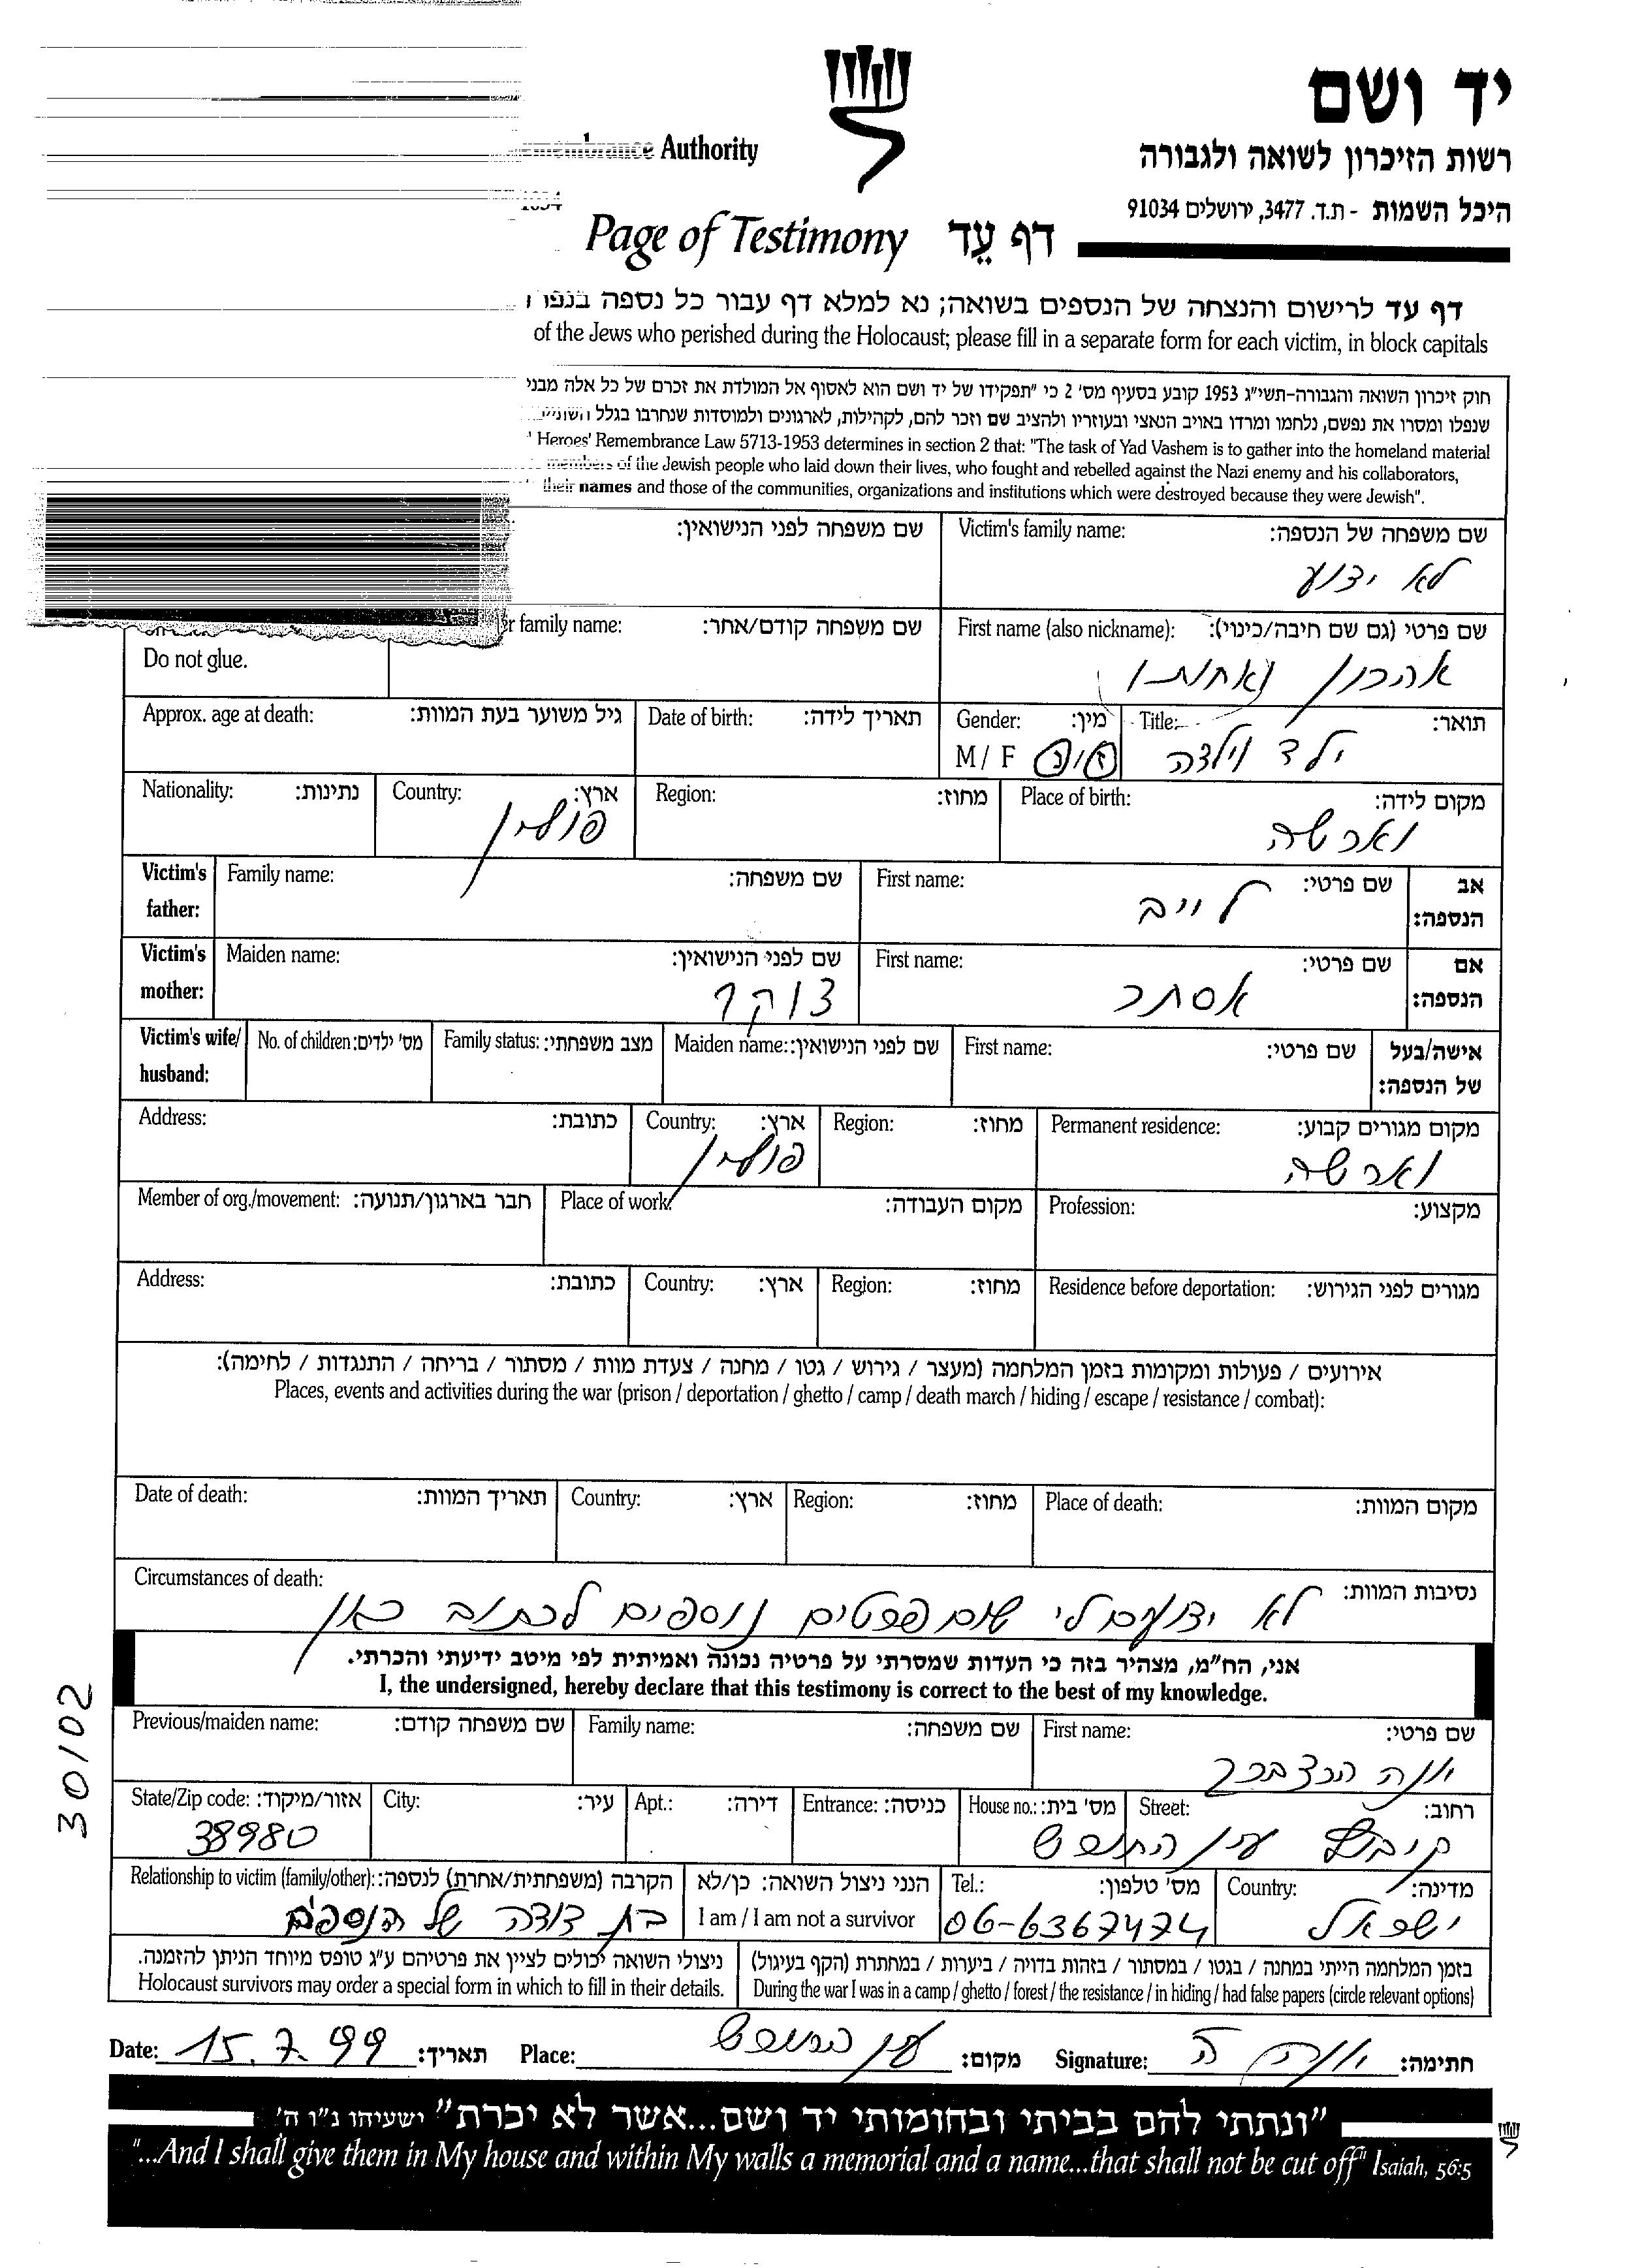 יד ושם
רשות הזיכרון לשואה ולגבורה
Authority
היכל השמות - ת.ד. 3477, ירושלים 91034
Page of Testimony דף עֵד
דף עד לרישום והנצחה של הנספים בשואה; נא למלא דף עבור כל נספה בנפרד
of the Jews who perished during the Holocaust; please fill in a separate form for each victim, in block capitals
חוק זיכרון השואה והגבורה-תשי״ג 1953 קובע בסעיף מס׳ 2 כי ״תפקידו של יד ושם הוא לאסוף אל המולדת את זכרם של כל אלה מבני
שנפלו ומסרו את נפשם, נלחמו ומרדו באויב הנאצי ובעוזריו ולהציב שם וזכר להם, לקהילות, לארגונים ולמוסדות שנחרבו בגלל
Heroes' Remembrance Law 5713-1953 determines in section 2 that: "The task of Yad Vashem is to gather into the homeland material
members of the Jewish people who laid down their lives, who fought and rebelled against the Nazi enemy and his collaborators,
their names and those of the communities, organizations and institutions which were destroyed because they were Jewish".
שם משפחה לפני הנישואין: Victim's family name: שם משפחה של הנספה:
לא ידוע
family name: שם משפחה קודם/אחר: First name (also nickname): שם פרטי (גם שם חיבה/כינוי):
Do not glue.
אהרון ואחותו
Approx. age at death: גיל משוער בעת המוות: Date of birth: תאריך לידה: Gender: מין: Title: תואר:
M / F ז / נ ילד וילדה
Nationality: נתינות: Country: ארץ: Region: מחוז: Place of birth: מקום לידה:
פולין וארשה
Victim's father: Family name: שם משפחה: First name: שם פרטי: אב הנספה:
לייב
Victim's mother: Maiden name: שם לפני הנישואין: First name: שם פרטי: אם הנספה:
צוקר אסתר
Victim's wife/ husband: No. of children: מס׳ ילדים: Family status: מצב משפחתי: Maiden name: שם לפני הנישואין: First name: שם פרטי: אישה/בעל של הנספה:
Address: כתובת: Country: ארץ: Region: מחוז: Permanent residence: מקום מגורים קבוע:
פולין וארשה
Member of org./movement: חבר בארגון/תנועה: Place of work: מקום העבודה: Profession: מקצוע:
Address: כתובת: Country: ארץ: Region: מחוז: Residence before deportation: מגורים לפני הגירוש:
אירועים / פעולות ומקומות בזמן המלחמה (מעצר / גירוש / גטו / מחנה / צעדת מוות / מסתור / בריחה / התנגדות / לחימה):
Places, events and activities during the war (prison / deportation / ghetto / camp / death march / hiding / escape / resistance / combat):
Date of death: תאריך המוות: Country: ארץ: Region: מחוז: Place of death: מקום המוות:
Circumstances of death: נסיבות המוות:
לא ידועים לי שום פרטים נוספים לכתוב כאן
אני, הח״מ, מצהיר בזה כי העדות שמסרתי על פרטיה נכונה ואמיתית לפי מיטב ידיעתי והכרתי.
I, the undersigned, hereby declare that this testimony is correct to the best of my knowledge.
30/02
Previous/maiden name: שם משפחה קודם: Family name: שם משפחה: First name: שם פרטי:
State/Zip code: אזור/מיקוד: City: עיר: Apt.: דירה: Entrance: כניסה: House no.: מס׳ בית: Street: רחוב:
38980 קיבוץ עין החורש
Relationship to victim (family/other): הקרבה (משפחתית/אחרת) לנספה: הנני ניצול השואה: כן/לא Tel.: מס׳ טלפון: Country: מדינה:
בת דודה של הנספים I am / I am not a survivor 06-6367474 ישראל
ניצולי השואה יכולים לציין את פרטיהם ע״ג טופס מיוחד הניתן להזמנה. בזמן המלחמה הייתי במחנה / בגטו / במסתור / בזהות בדויה / ביערות / במחתרת (הקף בעיגול)
Holocaust survivors may order a special form in which to fill in their details. During the war I was in a camp / ghetto / forest / the resistance / in hiding / had false papers (circle relevant options)
Date: 15.7.99 תאריך: Place: עין החורש מקום: Signature: חתימה:
״ונתתי להם בביתי ובחומותי יד ושם...אשר לא יכרת״ ישעיהו נ״ו ה׳
"...And I shall give them in My house and within My walls a memorial and a name...that shall not be cut off" Isaiah, 56:5